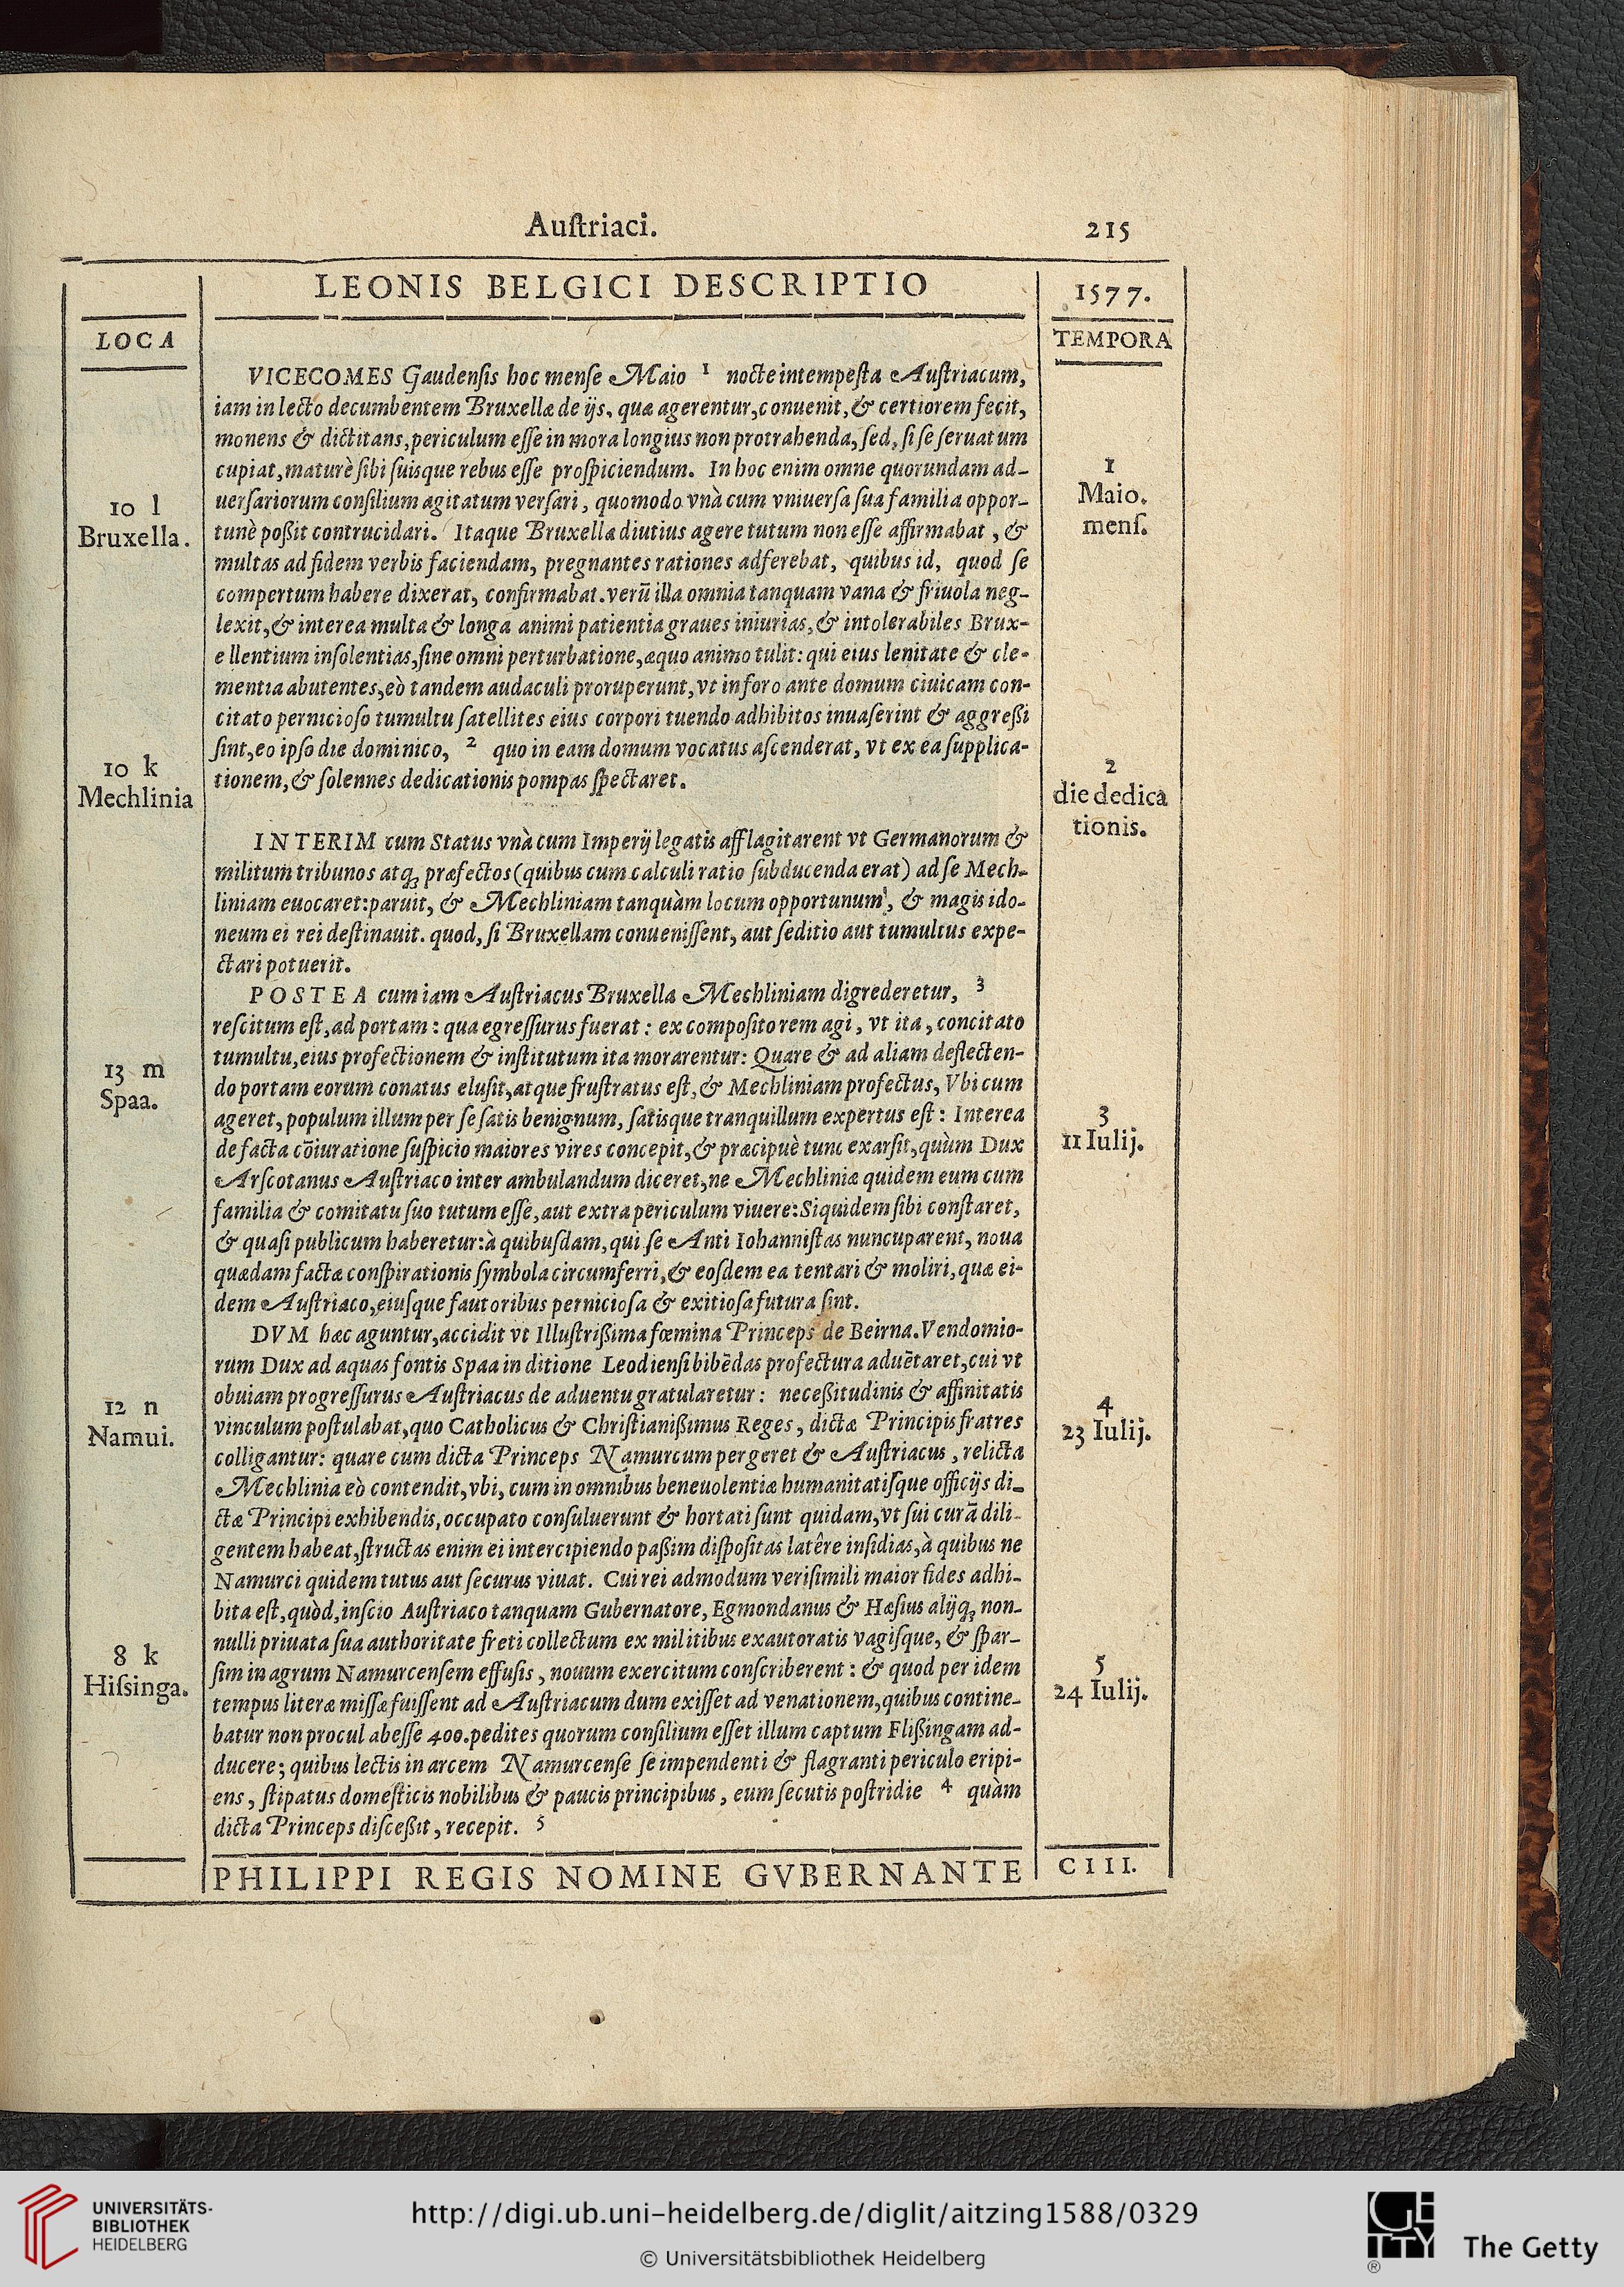 Auſtriaci.
215
LEONIS BELGICI DESCRIPTIO
1577.
LOCA
TEMPORA
VICECOMES Gaudenſis hoc menſe Maio 1 nocte intempeſta Auſtriacum,
iam in lecto decumbentem Bruxellæ de ijs, quæ agerentur, conuenit, & certiorem fecit,
monens & dictitans, periculum eſſe in mora longius non protrahenda, ſed, ſi ſe ſeruatum
cupiat, maturè ſibi ſuisque rebus eſſe proſpiciendum. In hoc enim omne quorundam ad-
uerſariorum conſilium agitatum verſari, quomodo vnà cum vniuerſa ſua familia oppor-
tunè poßit contrucidari. Itaque Bruxellæ diutius agere tutum non eſſe affirmabat, &
multas ad fidem verbis faciendam, pregnantes rationes adferebat, quibus id, quod ſe
compertum habere dixerat, confirmabat. verũ illa omnia tanquam vana & friuola neg-
lexit, & interea multa & longa animi patientia graues iniurias, & intolerabiles Brux-
ellentium inſolentias, ſine omni perturbatione, æquo animo tulit: qui eius lenitate & cle-
mentia abutentes, eò tandem audaculi proruperunt, vt in foro ante domum ciuicam con-
citato pernicioſo tumultu ſatellites eius corpori tuendo adhibitos inuaſerint & aggreßi
ſint, eo ipſo die dominico, 2 quo in eam domum vocatus aſcenderat, vt ex ea ſupplica-
tionem, & ſolennes dedicationis pompas ſpectaret.
10 l
Bruxella.
1
Maio.
menſ.
10 k
Mechlinia
2
die dedica
tionis.
INTERIM cum Status vnà cum Imperij legatis afflagitarent vt Germanorum &
militum tribunos atq; præfectos (quibus cum calculi ratio ſubducenda erat) ad ſe Mech-
liniam euocaret: paruit, & Mechliniam tanquàm locum opportunum, & magis ido-
neum ei rei deſtinauit. quod, ſi Bruxellam conueniſſent, aut ſeditio aut tumultus expe-
ctari potuerit.
POSTEA cum iam Auſtriacus Bruxella Mechliniam digrederetur, 3
reſcitum eſt, ad portam: qua egreſſurus fuerat: ex compoſito rem agi, vt ita, concitato
tumultu, eius profectionem & inſtitutum ita morarentur: Quare & ad aliam deflecten-
do portam eorum conatus eluſit, atque fruſtratus eſt, & Mechliniam profectus, Vbi cum
ageret, populum illum per ſe ſatis benignum, ſatisque tranquillum expertus eſt: Interea
de facta cõiuratione ſuſpicio maiores vires concepit, & præcipuè tunc exarſit, quùm Dux
Arſcotanus Auſtriaco inter ambulandum diceret, ne Mechliniæ quidem eum cum
familia & comitatu ſuo tutum eſſe, aut extra periculum viuere: Siquidem ſibi conſtaret,
& quaſi publicum haberetur: à quibuſdam, qui ſe Anti Iohanniſtas nuncuparent, noua
quædam factæ conſpirationis ſymbola circumferri, & eoſdem ea tentari & moliri, quæ ei-
dem Auſtriaco, eiuſque fautoribus pernicioſa & exitioſa futura ſint.
13 m
Spaa.
3
11 Iulij.
DVM hæc aguntur, accidit vt Illuſtrißima fœmina Princeps de Beirna. Vendomio-
rum Dux ad aquas fontis Spaa in ditione Leodienſi bibẽdas profectura aduẽtaret, cui vt
obuiam progreſſurus Auſtriacus de aduentu gratularetur: neceßitudinis & affinitatis
vinculum poſtulabat, quo Catholicus & Chriſtianißimus Reges, dictæ Principis fratres
colligantur: quare cum dicta Princeps Namurcum pergeret & Auſtriacus, relicta
Mechlinia eò contendit, vbi, cum in omnibus beneuolentiæ humanitatiſque officijs di-
ctæ Principi exhibendis, occupato conſuluerunt & hortati ſunt quidam, vt ſui curã dili-
gentem habeat, ſtructas enim ei intercipiendo paßim diſpoſitas latêre inſidias, à quibus ne
Namurci quidem tutus aut ſecurus viuat. Cui rei admodùm veriſimili maior fides adhi-
bita eſt, quòd, inſcio Auſtriaco tanquam Gubernatore, Egmondanus & Hæſius alijq; non-
nulli priuata ſua authoritate freti collectum ex militibus exautoratis vagiſque, & ſpar-
ſim in agrum Namurcenſem effuſis, nouum exercitum conſcriberent: & quod per idem
tempus literæ miſſæ fuiſſent ad Auſtriacum dum exiſſet ad venationem, quibus contine-
batur non procul abeſſe 400. pedites quorum conſilium eſſet illum captum Flißingam ad-
ducere; quibus lectis in arcem Namurcenſe ſe impendenti & flagranti periculo eripi-
ens, ſtipatus domeſticis nobilibus & paucis principibus, eum ſecutis poſtridie 4 quàm
dicta Princeps diſceßit, recepit. 5
12 n
Namui.
4
23 Iulij.
8 k
Hiſsinga.
5
24 Iulij.
PHILIPPI REGIS NOMINE GVBERNANTE
CIII.
UNIVERSITÄTS-
BIBLIOTHEK
HEIDELBERG
http://digi.ub.uni-heidelberg.de/diglit/aitzing1588/0329
© Universitätsbibliothek Heidelberg
GETTY
®
The Getty